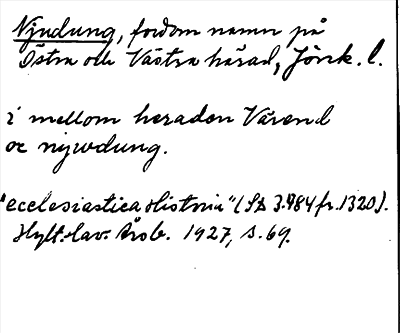 Njudung, fordom namn på
Östra och Västra härad, Jönk. l.
i mellom heraden Värend
oc niwdung.
"ecclesiastica Historia" (SD 3.484 fr. 1320).
Hylt.-Cav. Årsb. 1927, s. 69.